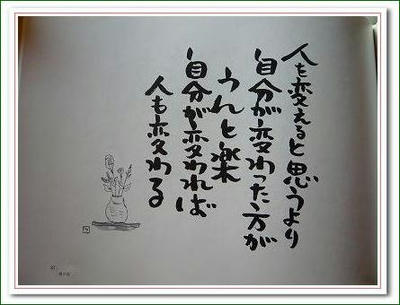 人を変えると思うより
自分が変わった方が
うんと楽
自分が変われば
人も変わる